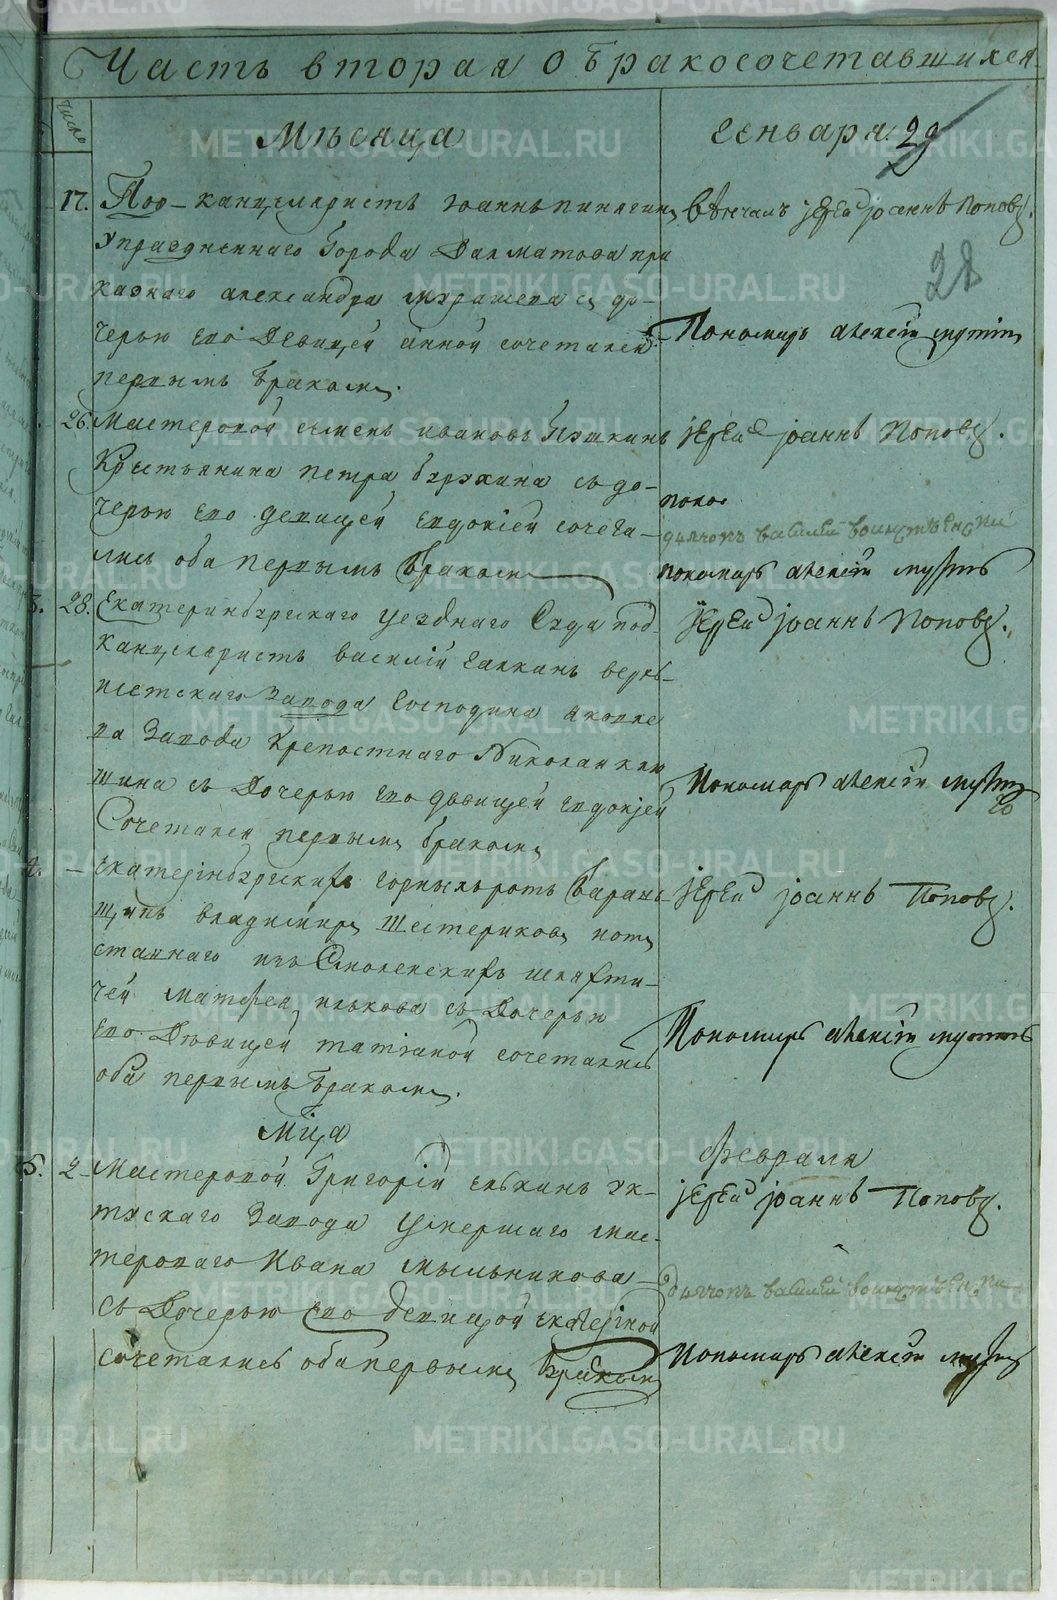 Часть вторая о бракосочетавшихся
число
Мѣсяца
Генваря 29
28
17. Под-канцеляристъ Іоаннъ Пинягинъ
Упраздненнаго Города Далматова при
казнаго александра мурашева съ до-
черью его Девицей Анной сочетался
первымъ бракомъ.
Вѣнчалъ іерей іоаннъ Поповъ.
Пономарь алексѣй
26. Мастеровой семенъ ивановъ Пушкинъ
Крестьянина петра съ до-
черью его девицей евдокіей сочета-
лись оба первымъ бракомъ
іерей іоаннъ Поповъ.
поно
дьячокъ василій
пономарь алексѣй
3. 28. Екатеринбургскаго уезднаго Суда под-
канцеляристъ василій галкинъ верхъ-
исетскаго Завода Господина яковле
ва Завода крепостнаго Николая клю
шина съ Дочерью его девицей евдокіей
Сочетался первымъ бракомъ
іерей іоаннъ Поповъ.
Пономарь алексѣй
4. — екатерінбургскихъ горныхъ ротъ барабан
щикъ владимиръ Шестериковъ
ставнаго изъ Смоленскихъ
чей матфея съ Дочерью
его Дѣвицей татіаной сочетались
оба первымъ бракомъ.
іерей іоаннъ Поповъ.
Пономарь алексѣй
Мца
Февраля
5. 2 Мастеровой Григорій елькинъ Ук-
тускаго Завода умершаго мас-
тероваго Ивана мыльникова
съ Дочерью его девицой екатеріной
сочетались оба первымъ бракомъ
іерей іоаннъ Поповъ.
дьячокъ василій
Пономарь алексѣй
METRIKI.GASO-URAL.RU